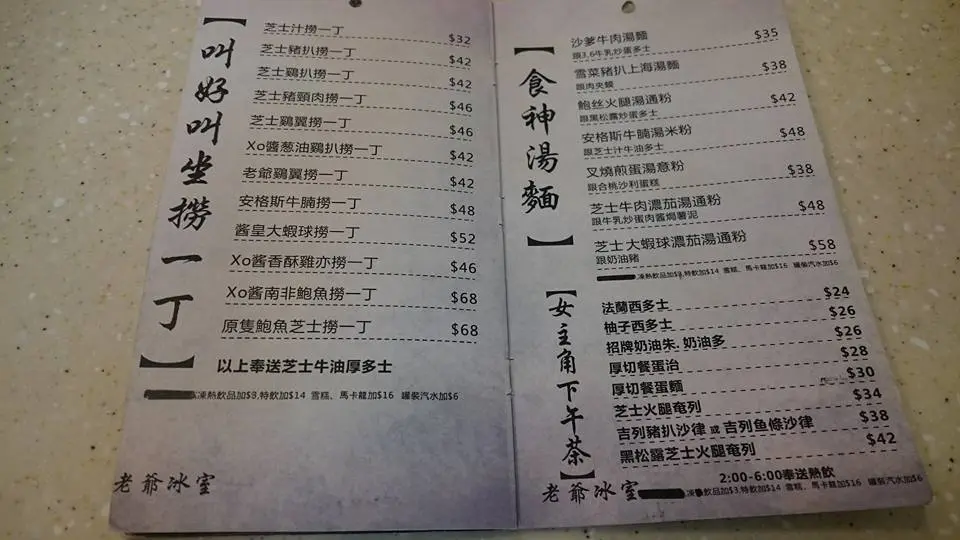 【叫好叫坐撈一丁】
芝士汁撈一丁 $32
芝士豬扒撈一丁 $42
芝士鷄扒撈一丁 $42
芝士豬頸肉撈一丁 $46
芝士鷄翼撈一丁 $46
Xo醬葱油鷄扒撈一丁 $42
老爺鷄翼撈一丁 $42
安格斯牛腩撈一丁 $48
酱皇大蝦球撈一丁 $52
Xo酱香酥雞亦撈一丁 $46
Xo酱南非鮑魚撈一丁 $68
原隻鮑魚芝士撈一丁 $68
以上奉送芝士牛油厚多士
凍熱飲品加$3,特飲加$14 雪糕、馬卡龍加$16 罐裝汽水加$6
老爺冰室
【食神湯麵】
沙爹牛肉湯麵 $35
跟3.6牛乳炒蛋多士
雪菜豬扒上海湯麵 $38
跟肉夾饃
鮑丝火腿湯通粉 $42
跟黑松露炒蛋多士
安格斯牛腩湯米粉 $48
跟芝士汁牛油多士
叉燒煎蛋湯意粉 $38
跟合桃沙利蛋糕
芝士牛肉濃茄湯通粉 $48
跟牛乳炒蛋肉酱焗薯泥
芝士大蝦球濃茄湯通粉 $58
跟奶油豬
凍熱飲品加$3,特飲加$14 雪糕、馬卡龍加$16 罐裝汽水加$6
【女主角下午茶】
法蘭西多士 $24
柚子西多士 $26
招牌奶油朱.奶油多 $26
厚切餐蛋治 $28
厚切餐蛋麵 $30
芝士火腿奄列 $34
吉列豬扒沙律 或 吉列鱼條沙律 $38
黑松露芝士火腿奄列 $42
2:00-6:00奉送熱飲
老爺冰室
凍飲品加$3,特飲加$14 雪糕、馬卡龍加$16 罐裝汽水加$6